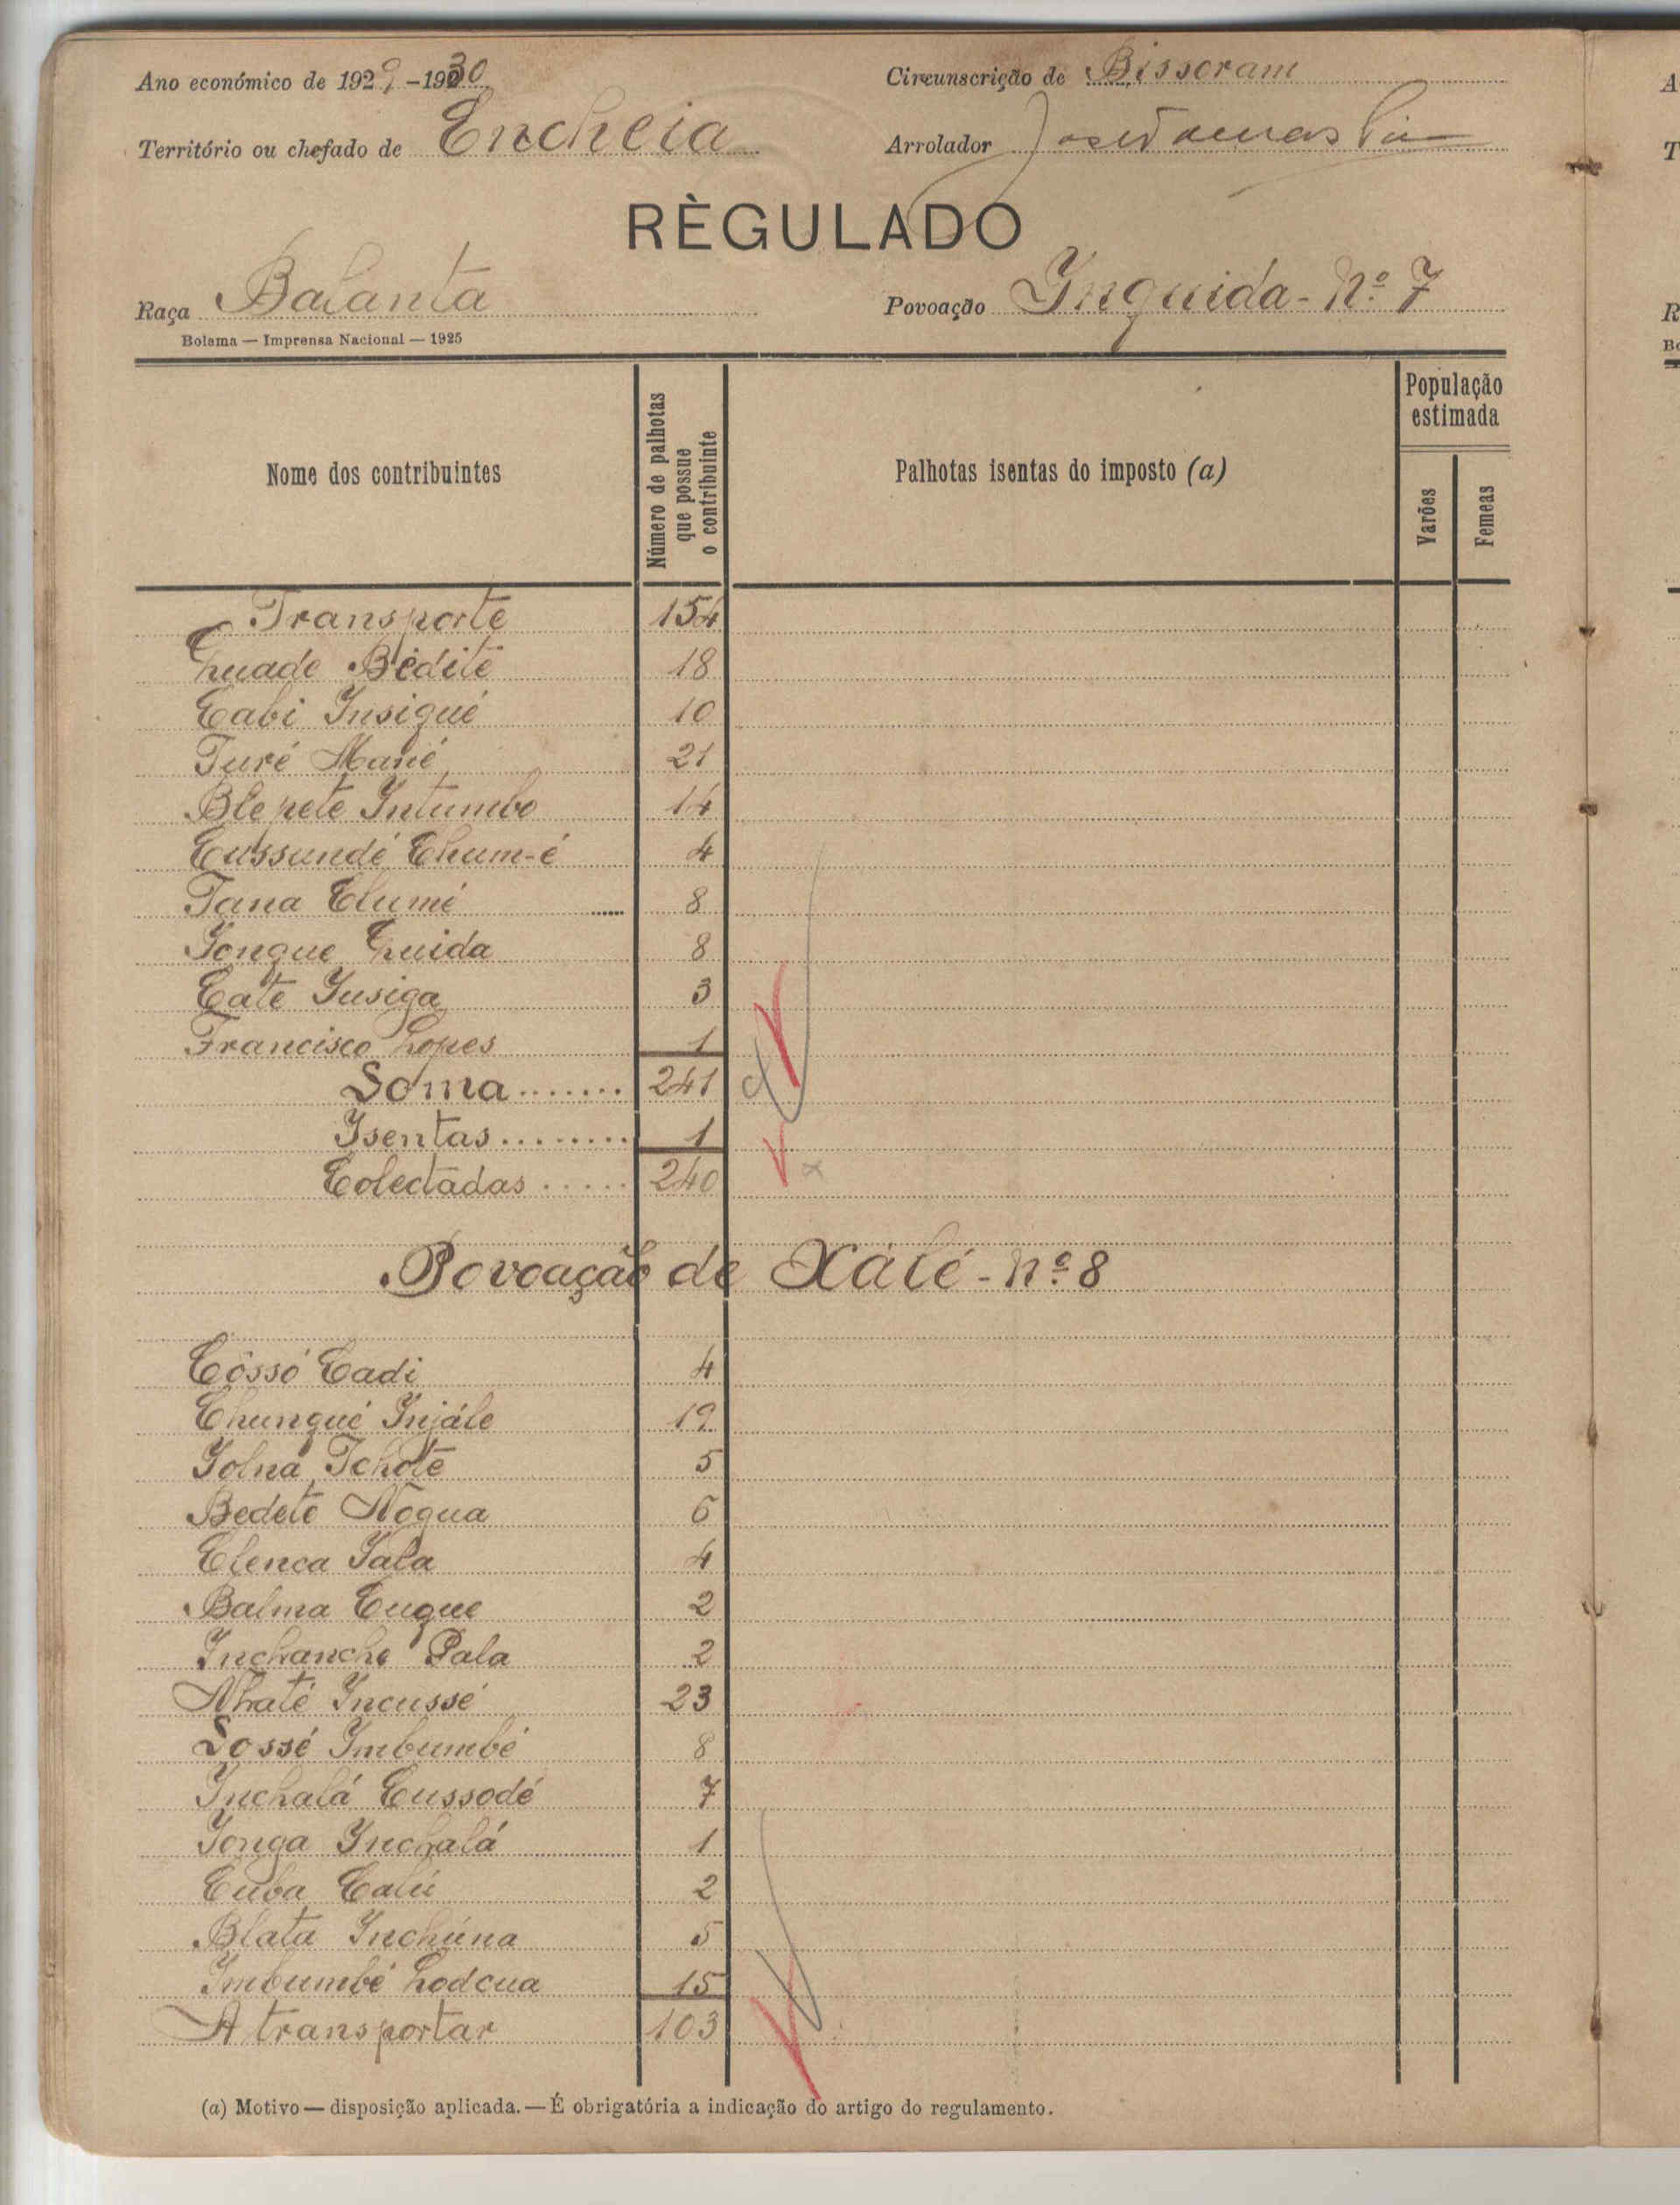 Ano económico de 1929-1930
Circunscrição de Bissoram
Território ou chefado de Encheia
Arrolador
RÈGULADO
Raça Balanta
Povoação Ynquida - Nº 7
Bolama — Imprensa Nacional — 1925
Nome dos contribuintes
Número de palhotas que possue o contribuinte
Palhotas isentas do imposto (a)
População estimada
Varões
Femeas
Transporte 154
Chuade Bedite 18
Cabi Insiqué 10
Turé Mané 21
Blepete Intumbo 14
Cussundé Chum-é 4
Tana Clumé 8
Tongue Chuida 8
Cate Insiga 3
Francisco Lopes 1
Soma ....... 241
Isentas ........ 1
Colectadas ..... 240
Povoação de Xálé - nº 8
Côssó Cadi 4
Chunqué Injále 19
Iolna Tchote 5
Bedete Nogua 6
Clenca Iala 4
Balma Cuque 2
Inchanche Pala 2
Nhaté Incussé 23
Sossé Imbumbé 8
Inchalá Cussodé 7
Ionga Inchalá 1
Cuba Calú 2
Blata Inchúna 5
Imbumbé Lodcua 15
A transportar 103
(a) Motivo — disposição aplicada. — É obrigatória a indicação do artigo do regulamento.